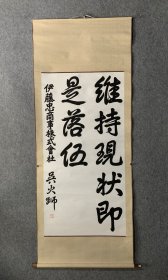 維持現状即
是落伍
伊藤忠商事株式會社
吳火獅